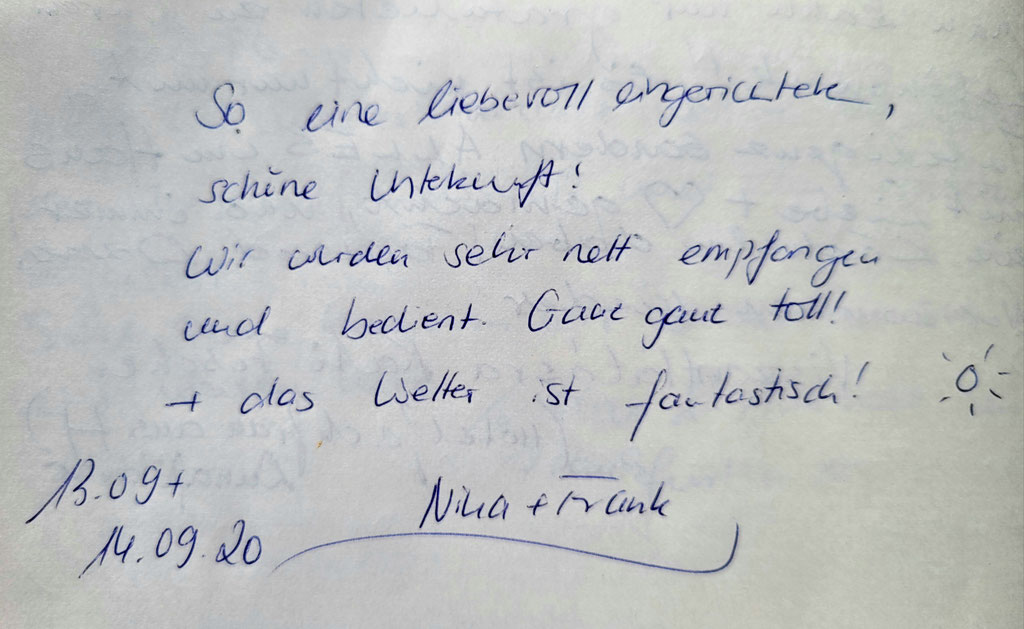 So eine liebevoll eingerichtete,
schöne Unterkunft!
Wir wurden sehr nett empfangen
und bedient. Ganz ganz toll!
+ das Wetter ist fantastisch!
13.09+
14.09.20
Nina + Frank